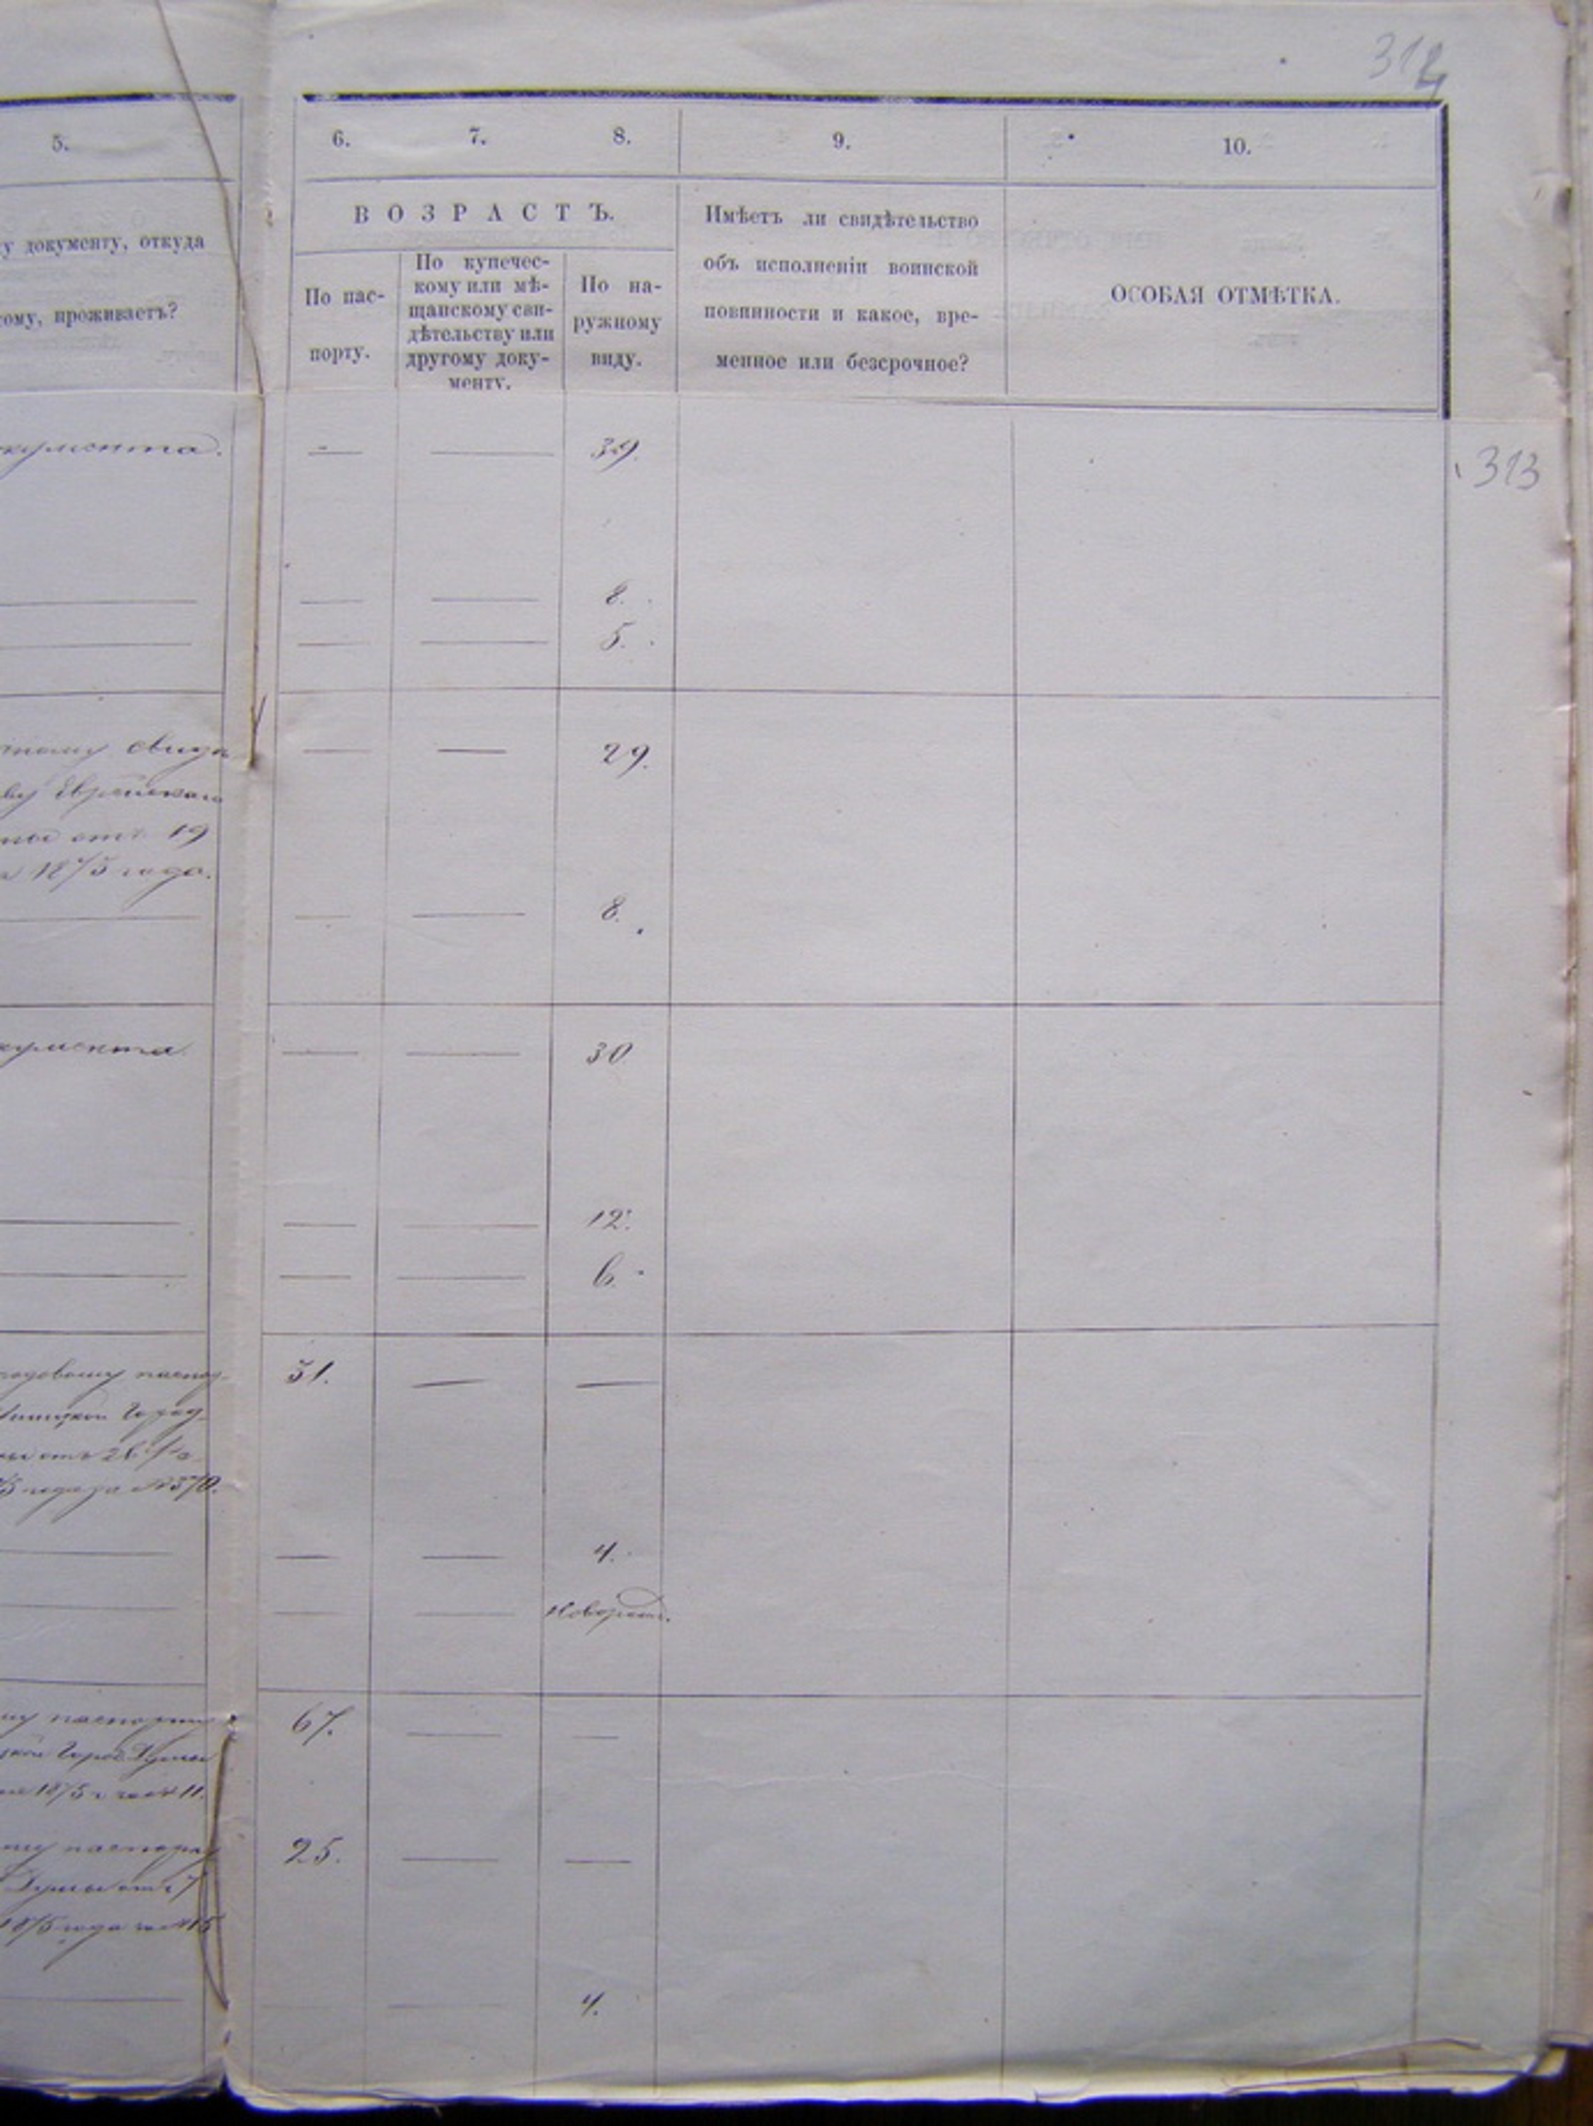 314
5. 6. 7. 8. 9. 10.
у документу, откуда
ому, проживаетъ?
ВОЗРАСТЪ.
По пас-
порту.
По купечес-
кому или мѣ-
щанскому сви-
дѣтельству или
другому доку-
менту.
По на-
ружному
виду.
Имѣетъ ли свидѣтельство
объ исполненіи воинской
повинности и какое, вре-
менное или безсрочное?
ОСОБАЯ ОТМѢТКА.
кумента. — — 39.
313
— — — 8.
— — — 5.
тному свидѣ — — 29.
ву Еврейскаго
отъ 19
1875 года.
— — — 8.
кумента — — 30
— — — 12.
— — — 6.
годовому паспор- 31. — —
Город-
отъ 26
5 года за № 370.
— — — 4.
— — — новорожд.
му паспорту 67. — —
кой Город. Думы
1875 г. за № 11.
му паспорту 25. — —
Думы отъ 7
1875 года за № 15
— — 4.